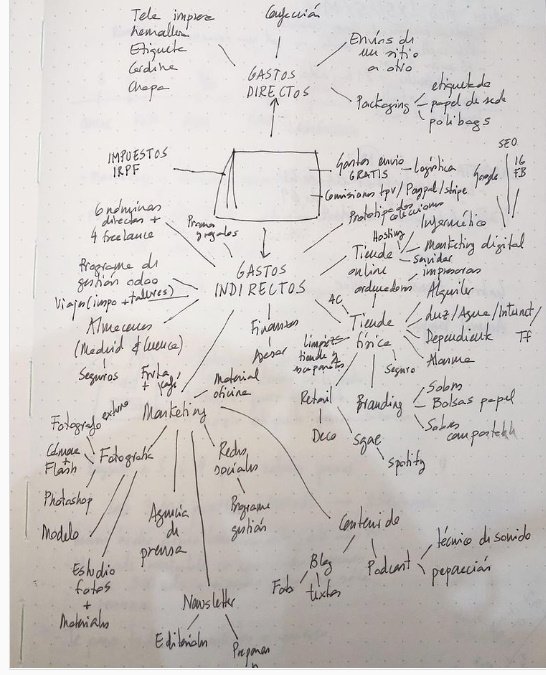 Tela impresa
Cremallera
Etiqueta
Cordina
Chapa
Confección
Envíos de
un sitio
a otro
GASTOS
DIRECTOS
Packaging
etiquetado
papel de seda
polibags
IMPUESTOS
IRPF
Gastos envío
GRATIS
Logística
Comisiones tpv/Paypal/stripe
SEO
Google
IG
FB
6 nóminas
directas +
4 freelance
Primas
Prototipo
colecciones
Hosting
Informático
Tienda
online
Marketing digital
servidor
impresoras
ordenadores
Programa de
gestión odoo
Viajes (impo + talleres)
GASTOS
INDIRECTOS
Almacenes
(Madrid & Cuenca)
Seguros
Fruta
+ café
Finanzas
Asesor
Material
oficina
AC
Tienda
física
Limpieza
tienda y
escaparates
Seguro
Alquiler
Luz/Agua/Internet/
TF
Dependiente
Alarma
Retail
Deco
Branding
Sobres
Bolsas papel
Sobres
compostelable
Sgae
Spotify
Marketing
Fotógrafo externo
Cámara
+
Flash
Fotografía
Photoshop
Modelo
Estudio
fotos
+
Materiales
Agencia
de
prensa
Redes
sociales
Programa
gestión
Newsletter
Editoriales
Contenido
Blog
Foto
textos
Podcast
técnico de sonido